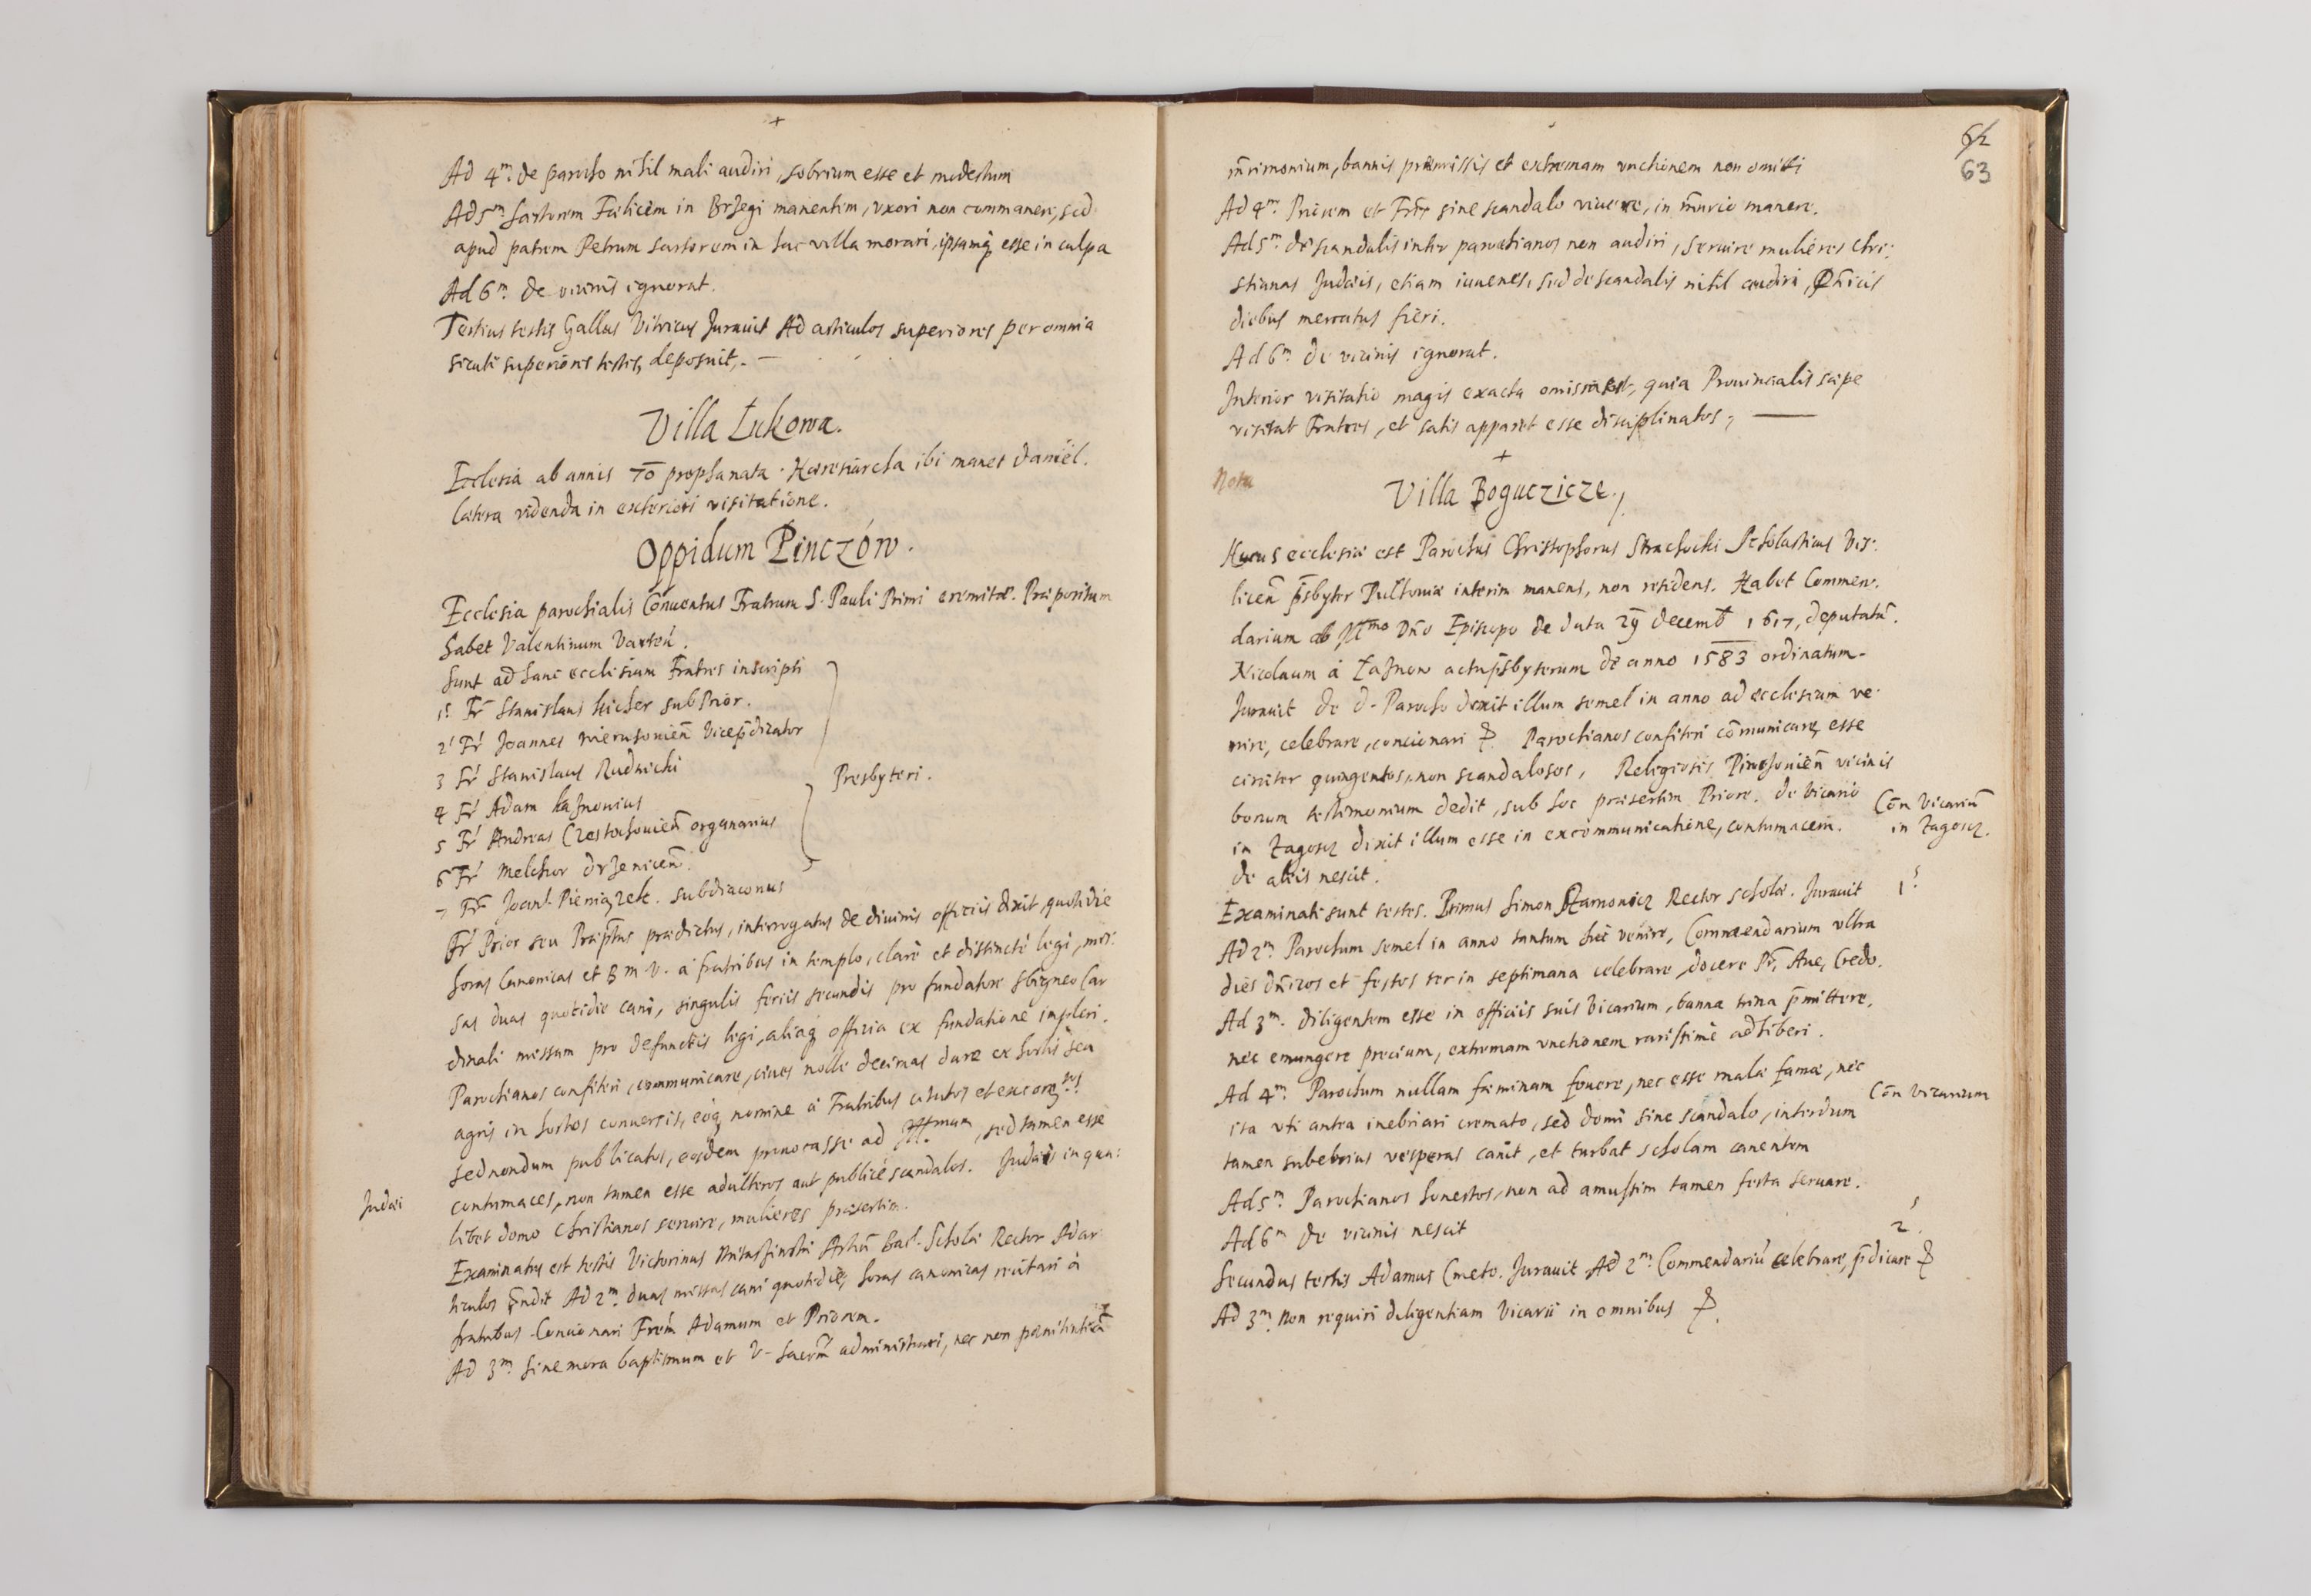 +
Ad 4m. de parocho nihil mali audiri, sobrium esse et modestum
Ad 5m. Sartorem Felicem in Brzegi manentem, vxori non commanere, sed
apud patrem Petrum sartorem in hac villa morari, ipsamq esse in culpa
Ad 6m. de vicinis ignorat.
Tertius testis Gallus Vitricus Jurauit Ad articulos superiores per omnia
sicuti superiores testes, deposuit,. —
Villa Łukowa.
Ecclesia ab annis 70 prophanata. Hæresiarcha ibi manet Daniël.
Cætera videnda in exteriori visitatione.
Oppidum Pinczów.
Ecclesia parochialis Conuentus Fratrum S. Pauli Primi eremitæ. Præpositum
habet Valentinum
Sunt ad hanc ecclesiam Fratres inscripti
1s Fr Stanislaus Subprior.
2 Fr Joannes Viceprdicator
3 Fr Stanislaus Rudnicki
4 Fr Adam
5 Fr Andreas Czestochouien organarius
6 Fr Melchior
Presbyteri.
7 Fr Joan. Pieniązek. subdiaconus
Fr Prior seu Præptus prædictus, interrogatus de diuinis officiis dixit, quotidie
horas Canonicas et B m V. a fratribus in templo, clarè et distinctè legi, mis:
sas duas quotidie cani, singulis feriis secundis pro fundatore Sbigneo Car
dinali missam pro defunctis legi, aliaq officia ex fundatione impleri.
Parochianos confiteri, communicare, ciues nolle decimas dare ex hortis seu
agris in hortos conuersis, eoq nomine à Fratribus citatos et excom
sed nondum publicatos, eosdem prouocasse ad Illmum, sed tamen esse
contumaces, non tamen esse adulteros aut publicè scandalos. Judæis in qua:
Judæi
libet domo Christianos seruire, mulieres præsertim.
Examinatus est testis Victorinus Artiu Bac. Scholæ Rector Ad ar
ticulos rndit Ad 2m. duas missas cani quotidie, horas canonicas recitari à
fratribus. Concionari Frem Adamum et Priorem.
Ad 3m. sine mora baptismum et V. Sacrm administrari, nec non pœnitentiã
62
63
mrimonium, bannis præmissis et extremam vnctionem non omitti
Ad 4m. Priorem et Frr sine scandalo viuere, in mnrio manere.
Ad 5m. de scandalis inter parochianos non audiri, seruire mulieres Chri:
stianas Judæis, etiam iuuenes, sed de scandalis nihil audiri, Dnicis
diebus mercatus fieri.
Ad 6m. de vicinis ignorat.
Interior visitatio magis exacta omissa est, quia Prouincialis sæpe
visitat Fratres, et satis apparet esse disciplinatos, —
+
Nota
Villa Boguczicze.
Huius ecclesiæ est Parochus Christophorus Strachocki Scholasticus Vis:
licen psbyter Pultouiæ interim manens, non residens. Habet Commen.
darium ab Illmo Dno Episcopo de data 29 decemb 1617, deputatu.
Nicolaum à actu psbyterum de anno 1583 ordinatum.
Jurauit de d. Parocho dixit illum semel in anno ad ecclesiam ve
nire, celebrare, concionari Parochianos confiteri communicare, esse
circiter quingentos, non scandalosos, Religiosis Pinczouien vicinis
bonum testimonium dedit, sub hoc præsertim Priore. de Vicario
in Zagosz dixit illum esse in excommunicatione, contumacem.
Con Vicariu
in Zagosz.
de aliis nescit.
Examinati sunt testes. Primus Simon Rector scholæ. Jurauit
1s.
Ad 2m. Parochum semel in anno tantum huc venire, Commendarium vltra
dies dnicos et festos ter in septimana celebrare, docere Pr, Aue, Credo.
Ad 3m. diligentem esse in officiis suis Vicarium, banna trina pmittere,
nec emungere precium, extremam vnctionem rarissimè adhiberi.
Ad 4m. Parochum nullam fæminam fouere, nec esse malæ famæ, nec
Con Vicarium
ita vti antea inebriari cremato, sed domi sine scandalo, interdum
tamen subebrius vesperas canit, et turbat scholam canentem
Ad 5m. Parochianos honestos, non ad amussim tamen festa seruare.
Ad 6m de vicinis nescit
2s.
Secundus testis Adamus Cmeto. Jurauit Ad 2m. Commendariu celebrare, pdicare
Ad 3m. non requiri diligentiam Vicarii in omnibus